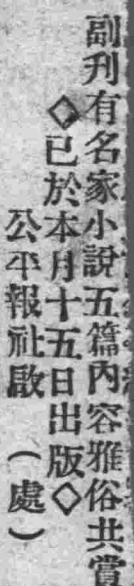 副刊有名家小說五篇內容雅俗共賞
◇已於本月十五日出版◇
公平報社啟 (處)